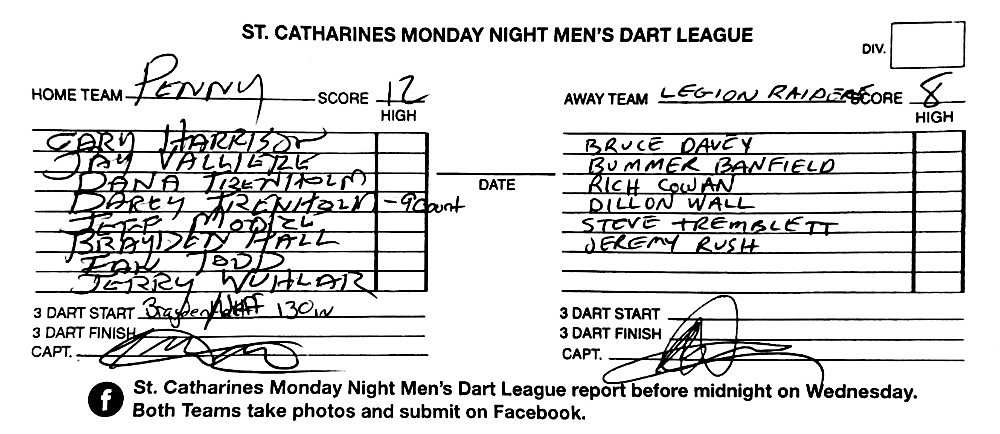 ST. CATHARINES MONDAY NIGHT MEN'S DART LEAGUE
DIV.
HOME TEAM PENNY SCORE 12
HIGH
GARY HARRISON
JAY VALLIERE
DANA TRENHOLM
DARCY TRENHOLM - 9 Count
JEFF MODZEL
BRAYDEN HALL
IAN TODD
JERRY WUHLAR
3 DART START Brayden 130 in
3 DART FINISH
CAPT.
DATE
AWAY TEAM LEGION RAIDERS SCORE 8
HIGH
BRUCE DAVEY
BUMMER BANFIELD
RICH COWAN
DILLON WALL
STEVE TREMBLETT
JEREMY RUSH
3 DART START
3 DART FINISH
CAPT.
f St. Catharines Monday Night Men's Dart League report before midnight on Wednesday.
Both Teams take photos and submit on Facebook.